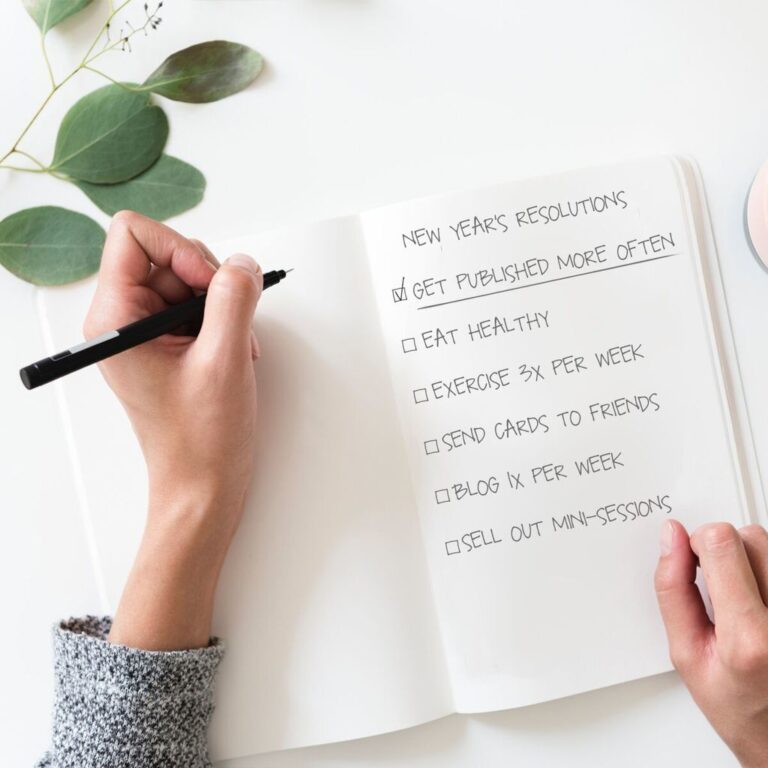 NEW YEAR'S RESOLUTIONS
GET PUBLISHED MORE OFTEN
EAT HEALTHY
EXERCISE 3X PER WEEK
SEND CARDS TO FRIENDS
BLOG 1X PER WEEK
SELL OUT MINI-SESSIONS